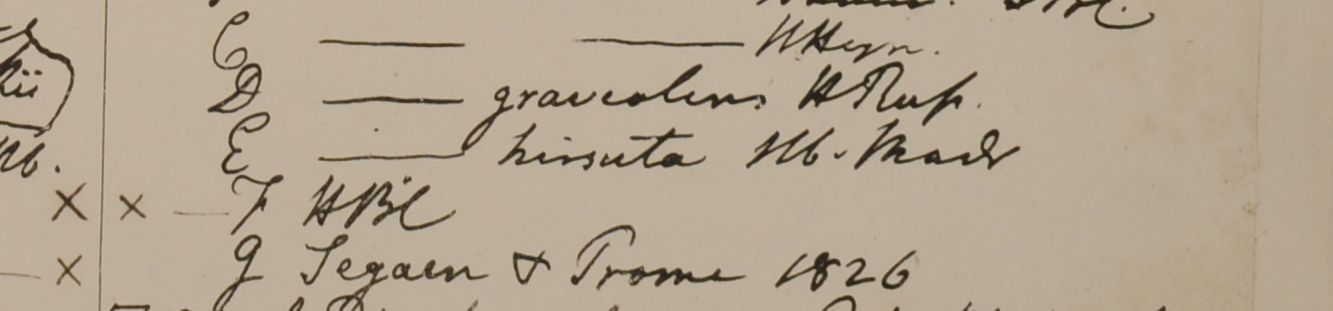 C — — HHeyn.
D — graveolens HRux.
E — hirsuta Hb. Madr
× × — F HBC
× G Segaen & Prome 1826